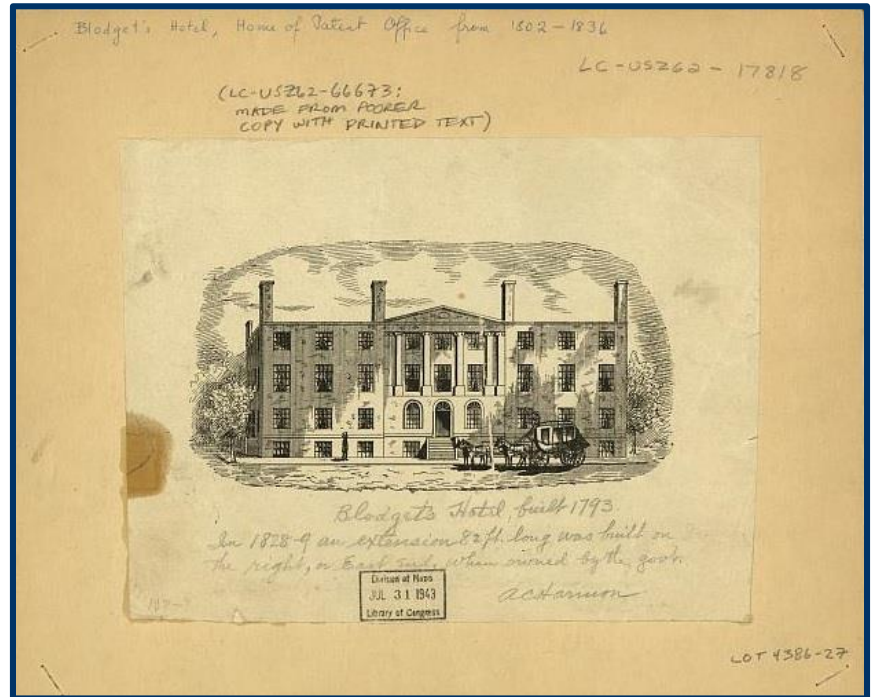 Blodget's Hotel, Home of Patent Office from 1802-1836
LC-USZ62-17818
(LC-USZ62-66673:
MADE FROM POORER
COPY WITH PRINTED TEXT)
Blodget's Hotel, built 1793.
In 1828-9 an extension 82 ft. long was built on
the right, or East end, when owned by the govt.
Division of Maps
JUL 31 1943
Library of Congress
ACHarrison
LOT 4386-27